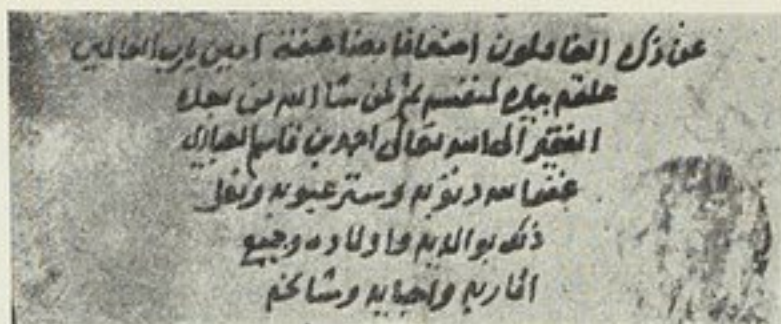 عن ذكره الغافلون اضعافا مضاعفة امين يارب العالمين
علقه بيده لنفسه ثم لمن شا الله من بعده
الفقير الى الله تعالى احمد بن قاسم العبادي
غفر الله ذنوبه وستر عيوبه وفعل
ذلك بوالديه واولاده وجميع
اقاربه واحبابه ومشايخه